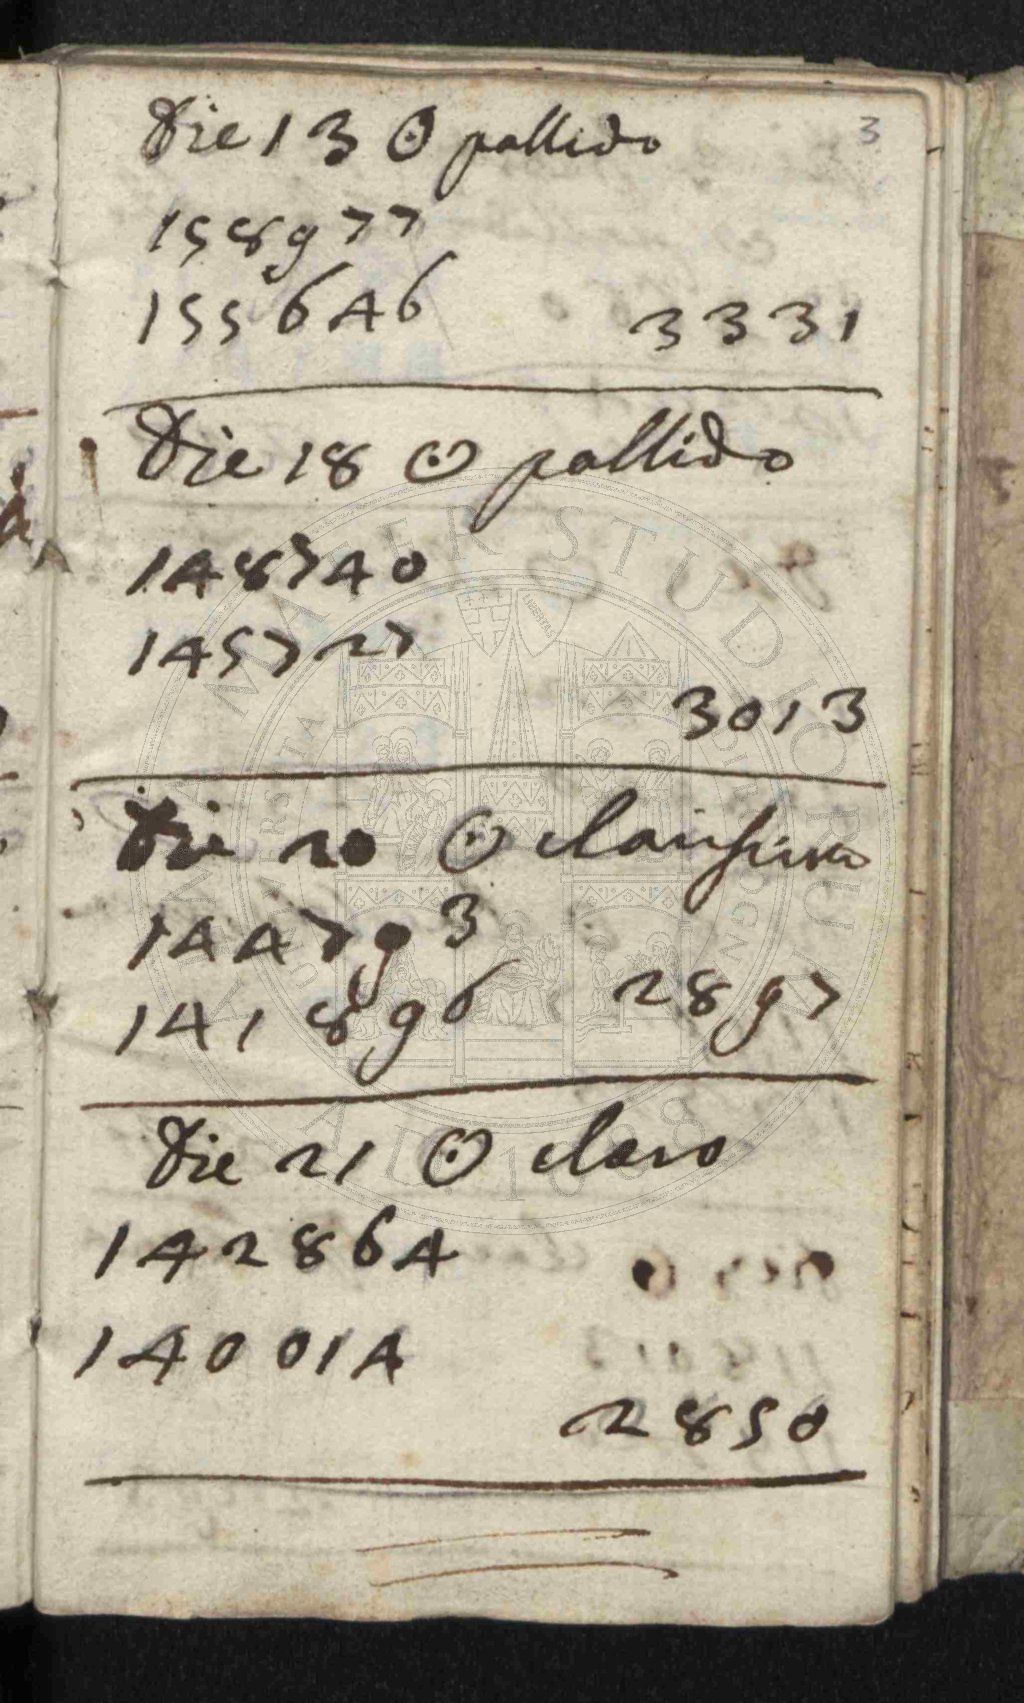 3
Die 13 ☉ pallido
158977
155646 3331
Die 18 ☉ pallido
148740
145727
3013
Die 20 ☉ clarissimo
144793
141896 2897
Die 21 ☉ claro
142864
140014
2850
ALMA MATER STUDIORUM
A.D. 1088